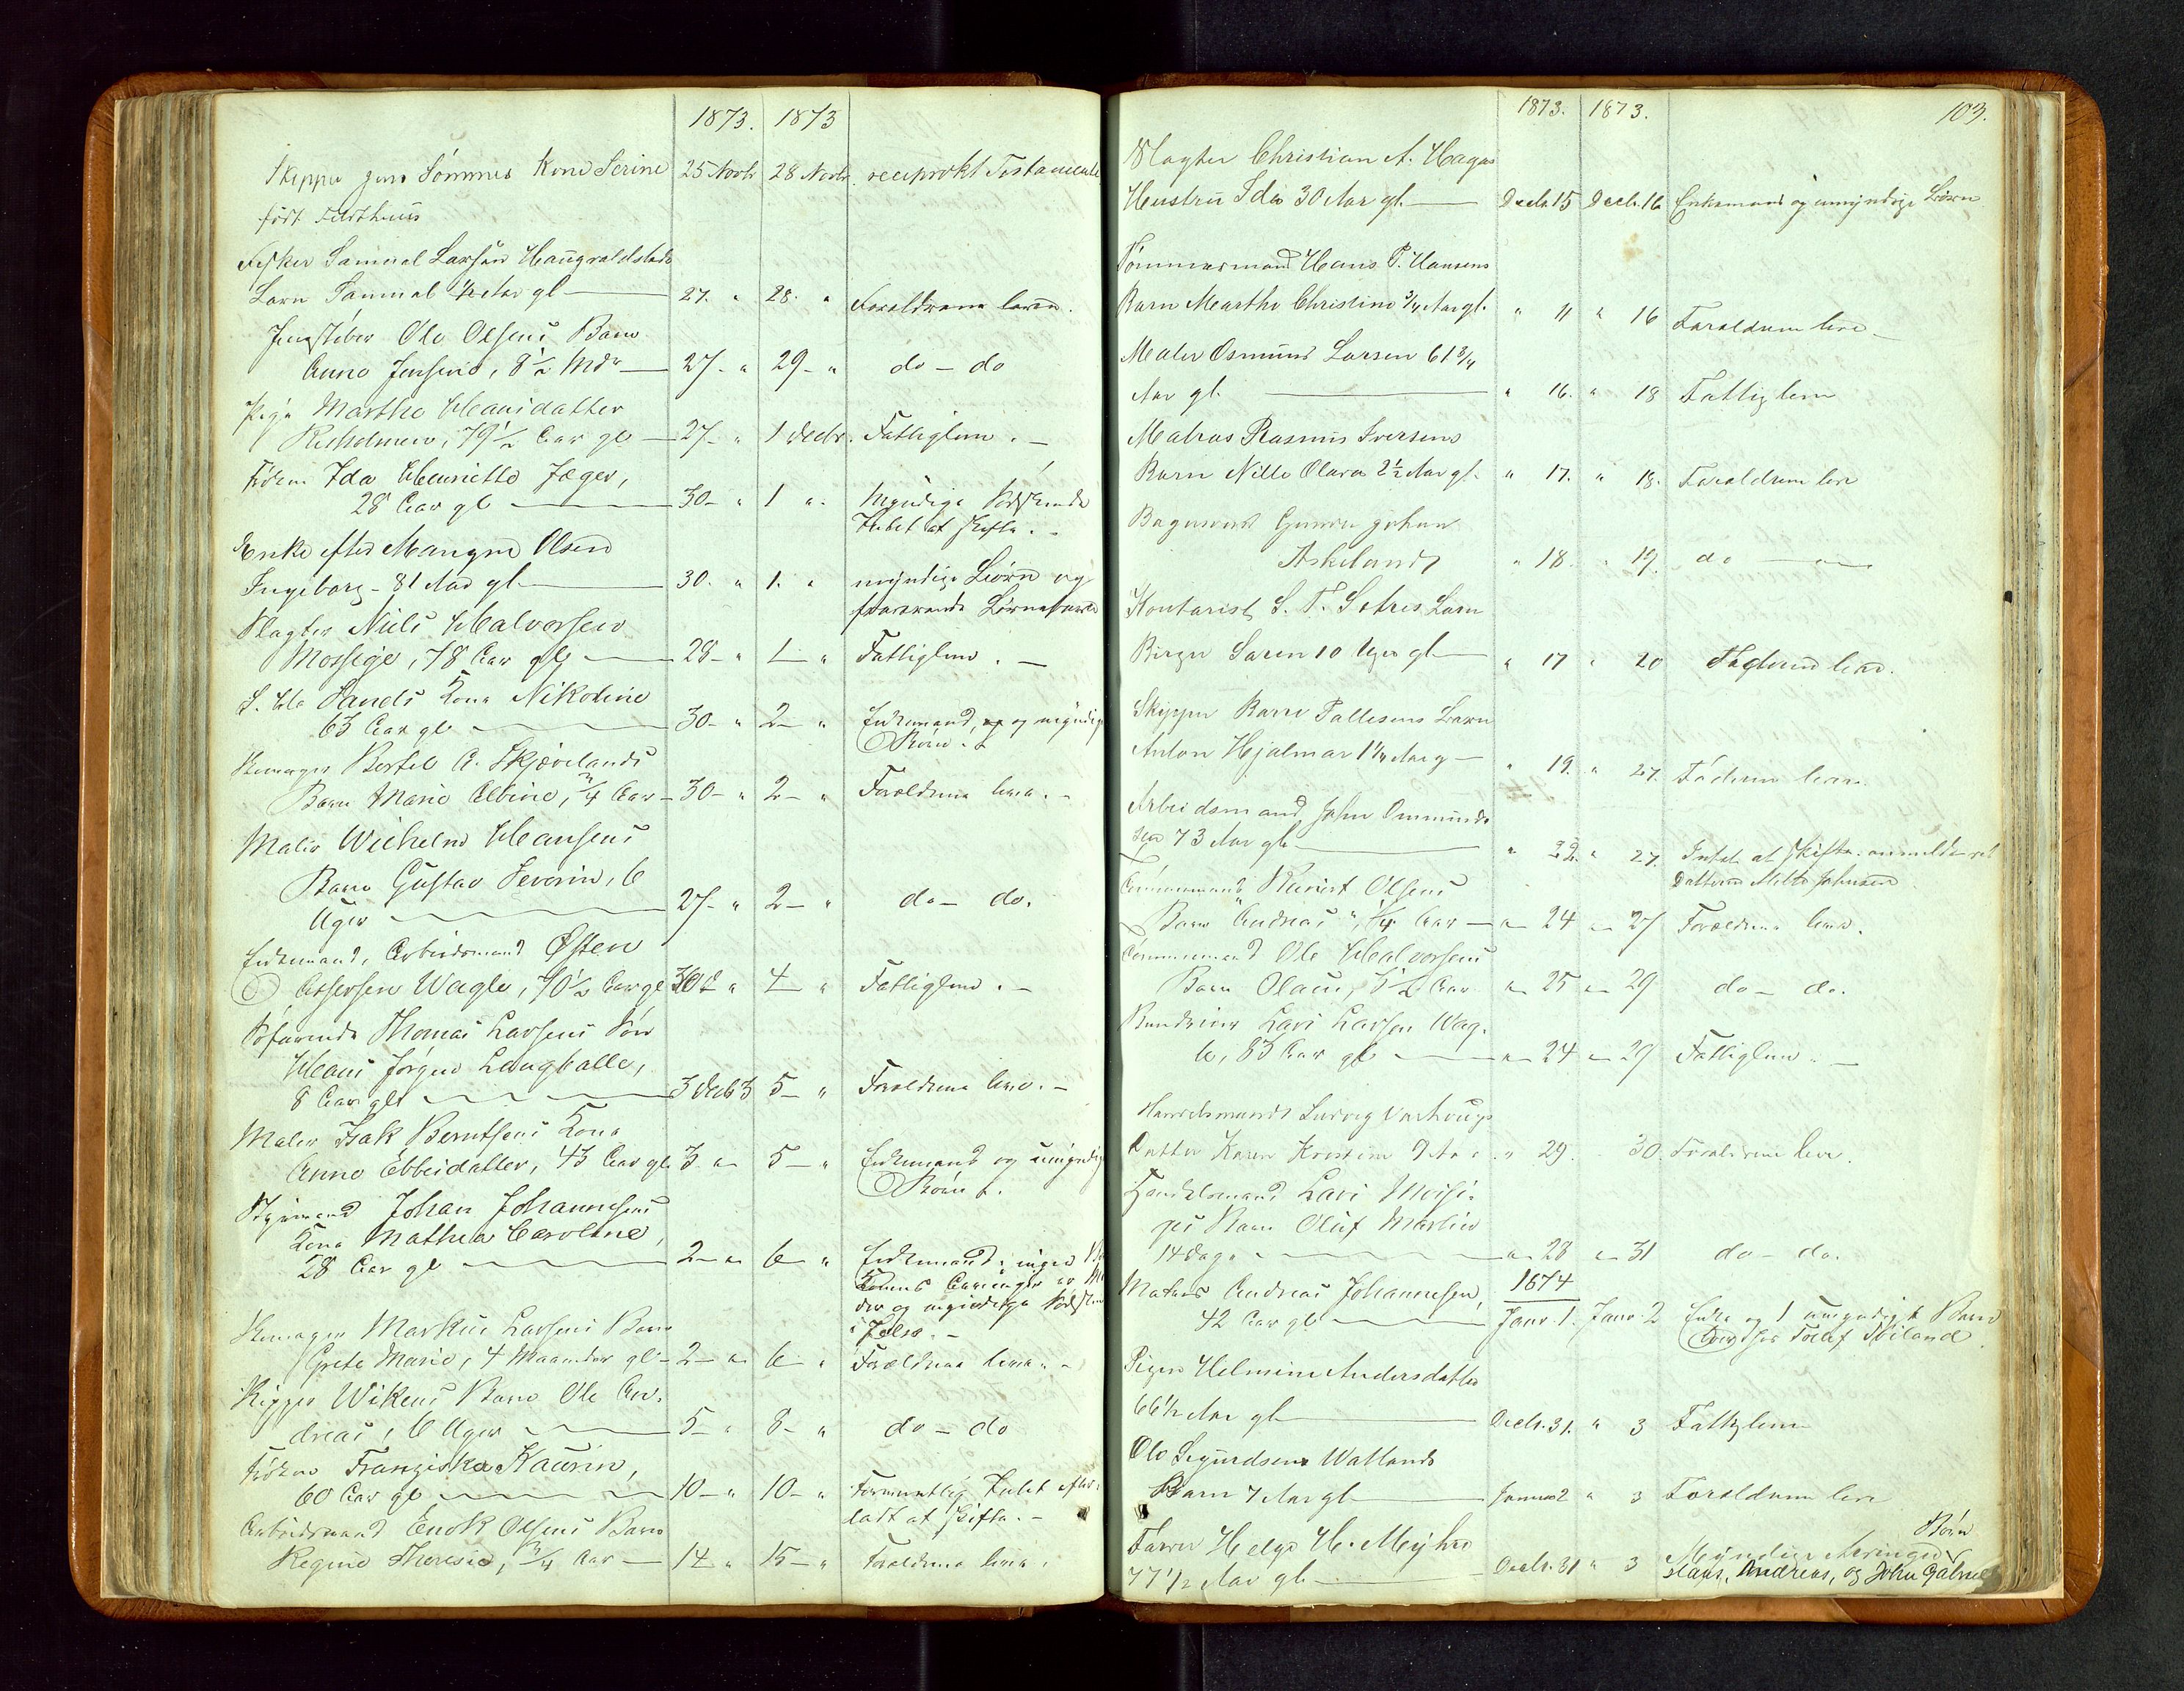 1873. 1873
Skipper Jens Sømmes Kone Serine 25 Novbr 28 Novbr. reciprokt Testamente
født
Fisker Samuel Larsen Haugvaldstads
Barn Samuel 1/2 Aar gl 27. " 28. " Forældrene leve.
Ole Olsens Barn
Anne Jensine, 8 1/2 Mdr 27- " 29- " do - do
Pige Marthe Hansdatter
79 1/2 Aar gl 27- " 1 Decbr. Fattiglem. -
Frøken Ida Henriette Jæger,
28 Aar gl 30- " 1 ". Myndige Sødskende
Intet at skifte. -
Enke efter Mangne Olsen
Ingeborg - 81 Aar gl. 30. " 1. " myndige Børn og
fraværende Børnebørn
Slagter Niels Halvorsen
Mossige, 78 Aar gl 28- " 1 " Fattiglem. -
Sands Kone Nikoline
63 Aar gl 30- " 2- " Enkemand, og myndige
Børn.
Skomager Bertel A. Skjævelands
Barn Marie Albine, 3/4 Aar - 30- " 2- " Forældrene leve. -
Maler Wilhelm Hansens
Barn Gustav Severin, 6
Uger 27- " 2- " do - do.
Enkemand, Arbeidsmand Østen
Assersen Wagle, 70 1/2 Aar gl 30 " 4 " Fattiglem. -
Søfarende Thomas Larsens Søn
Hans Jørgen Langballe,
8 Aar glt 3 Decbr 5- " Forældrene leve. -
Maler Isak Berntsens Kone
Anne Ebbesdatter, 43 Aar gl. 3 " 5- " Enkemand og umyndige
Børn.
Styrmand Johan Johannesens
Kone Mathea Caroline,
28 Aar gl 2- " 6 " Enkemand; ingen
Konens Arvinger er
der og myndige Sødskende
i Jelse. -
Skomager Markus Larsens Barn
Grete Marie, 4 Maaneder gl - 2- " 6- " Forældrene leve. -
Skipper Wikens Barn Ole An-
dreas, 6 Uger 5- " 8- " do - do
Frøken Franziska Kaurin,
60 Aar gl 10- " 10- " Formentlig Intet efter-
ladt at skifte. -
Arbeidsmand Enok Olsens Barn
Regine Theresie, 3/4 Aar - 14 " 15- " Forældrene leve.
1873. 1873. 103.
Slagter Christian A. Hagas
Hustru Ida 30 Aar gl. Decbr. 15 Decbr. 16 Enkemand og umyndige Børn
Tømmermand Hans P. Hansens
Barn Marthe Christine 3/4 Aar gl. " 11 " 16 Forældrene leve -
Maler Osmund Larsen 61 3/4
Aar gl. " 16. " 18 Fattiglem
Matros Rasmus Iversens
Barn Nille Olava 2 1/2 Aar gl. " 17. " 18. Forældrene leve
Bagersvend Gunder Johan
Askeland " 18. " 19. do
Kontorist S. T. Sætres Barn
Birger Søren 10 Uger gl " 17 " 20 Fader leve.
Skipper Barre Tallesens Barn
Anton Hjalmar 1 1/4 Aar g - " 19. " 27. Faderen lever.
Arbeidsmand John Ommunds
sen 73 Aar gl. " 22. " 27. Intet at skifte anmeldt ved
Datteren Mette Johnsen
Tømmermand Knut Olsens
Barn "Andreas", 1/4 Aar - " 24 " 27 Forældrene leve.
Tømmermand Ole Halvorsens
Barn Olaus, 5 1/2 Aar " 25 " 29 do - do.
Lars Larsen Wag-
le, 83 Aar gl " 24 " 29 Fattiglem. -
Handelsmand Ludvig Varhougs
Datter Karen Kristine 9 Aar. " 29. 30. Forældrene leve.
Handelsmand Lars Mossi-
ges Barn Oluf Martin
14 Dage " 28 " 31 do - do.
Matros Andreas Johannesen, 1874
42 Aar gl Janr. 1. Janr. 2 Enke og 1 umyndigt Barn
Toldb Tveland
Pigen Helmine Andersdatter
66 1/2 Aar gl Decbr. 31. " 3 Fattiglem
Ole Sigurdsens Watlands
Barn 7 Aar gl Januar 2 " 3 Forældrene leve
Farver Helge H. Myhre
77 1/2 Aar gl. Decbr. 31 " 3 Myndige Arvinger Børn
Hans, Andreas, og John Gabriel